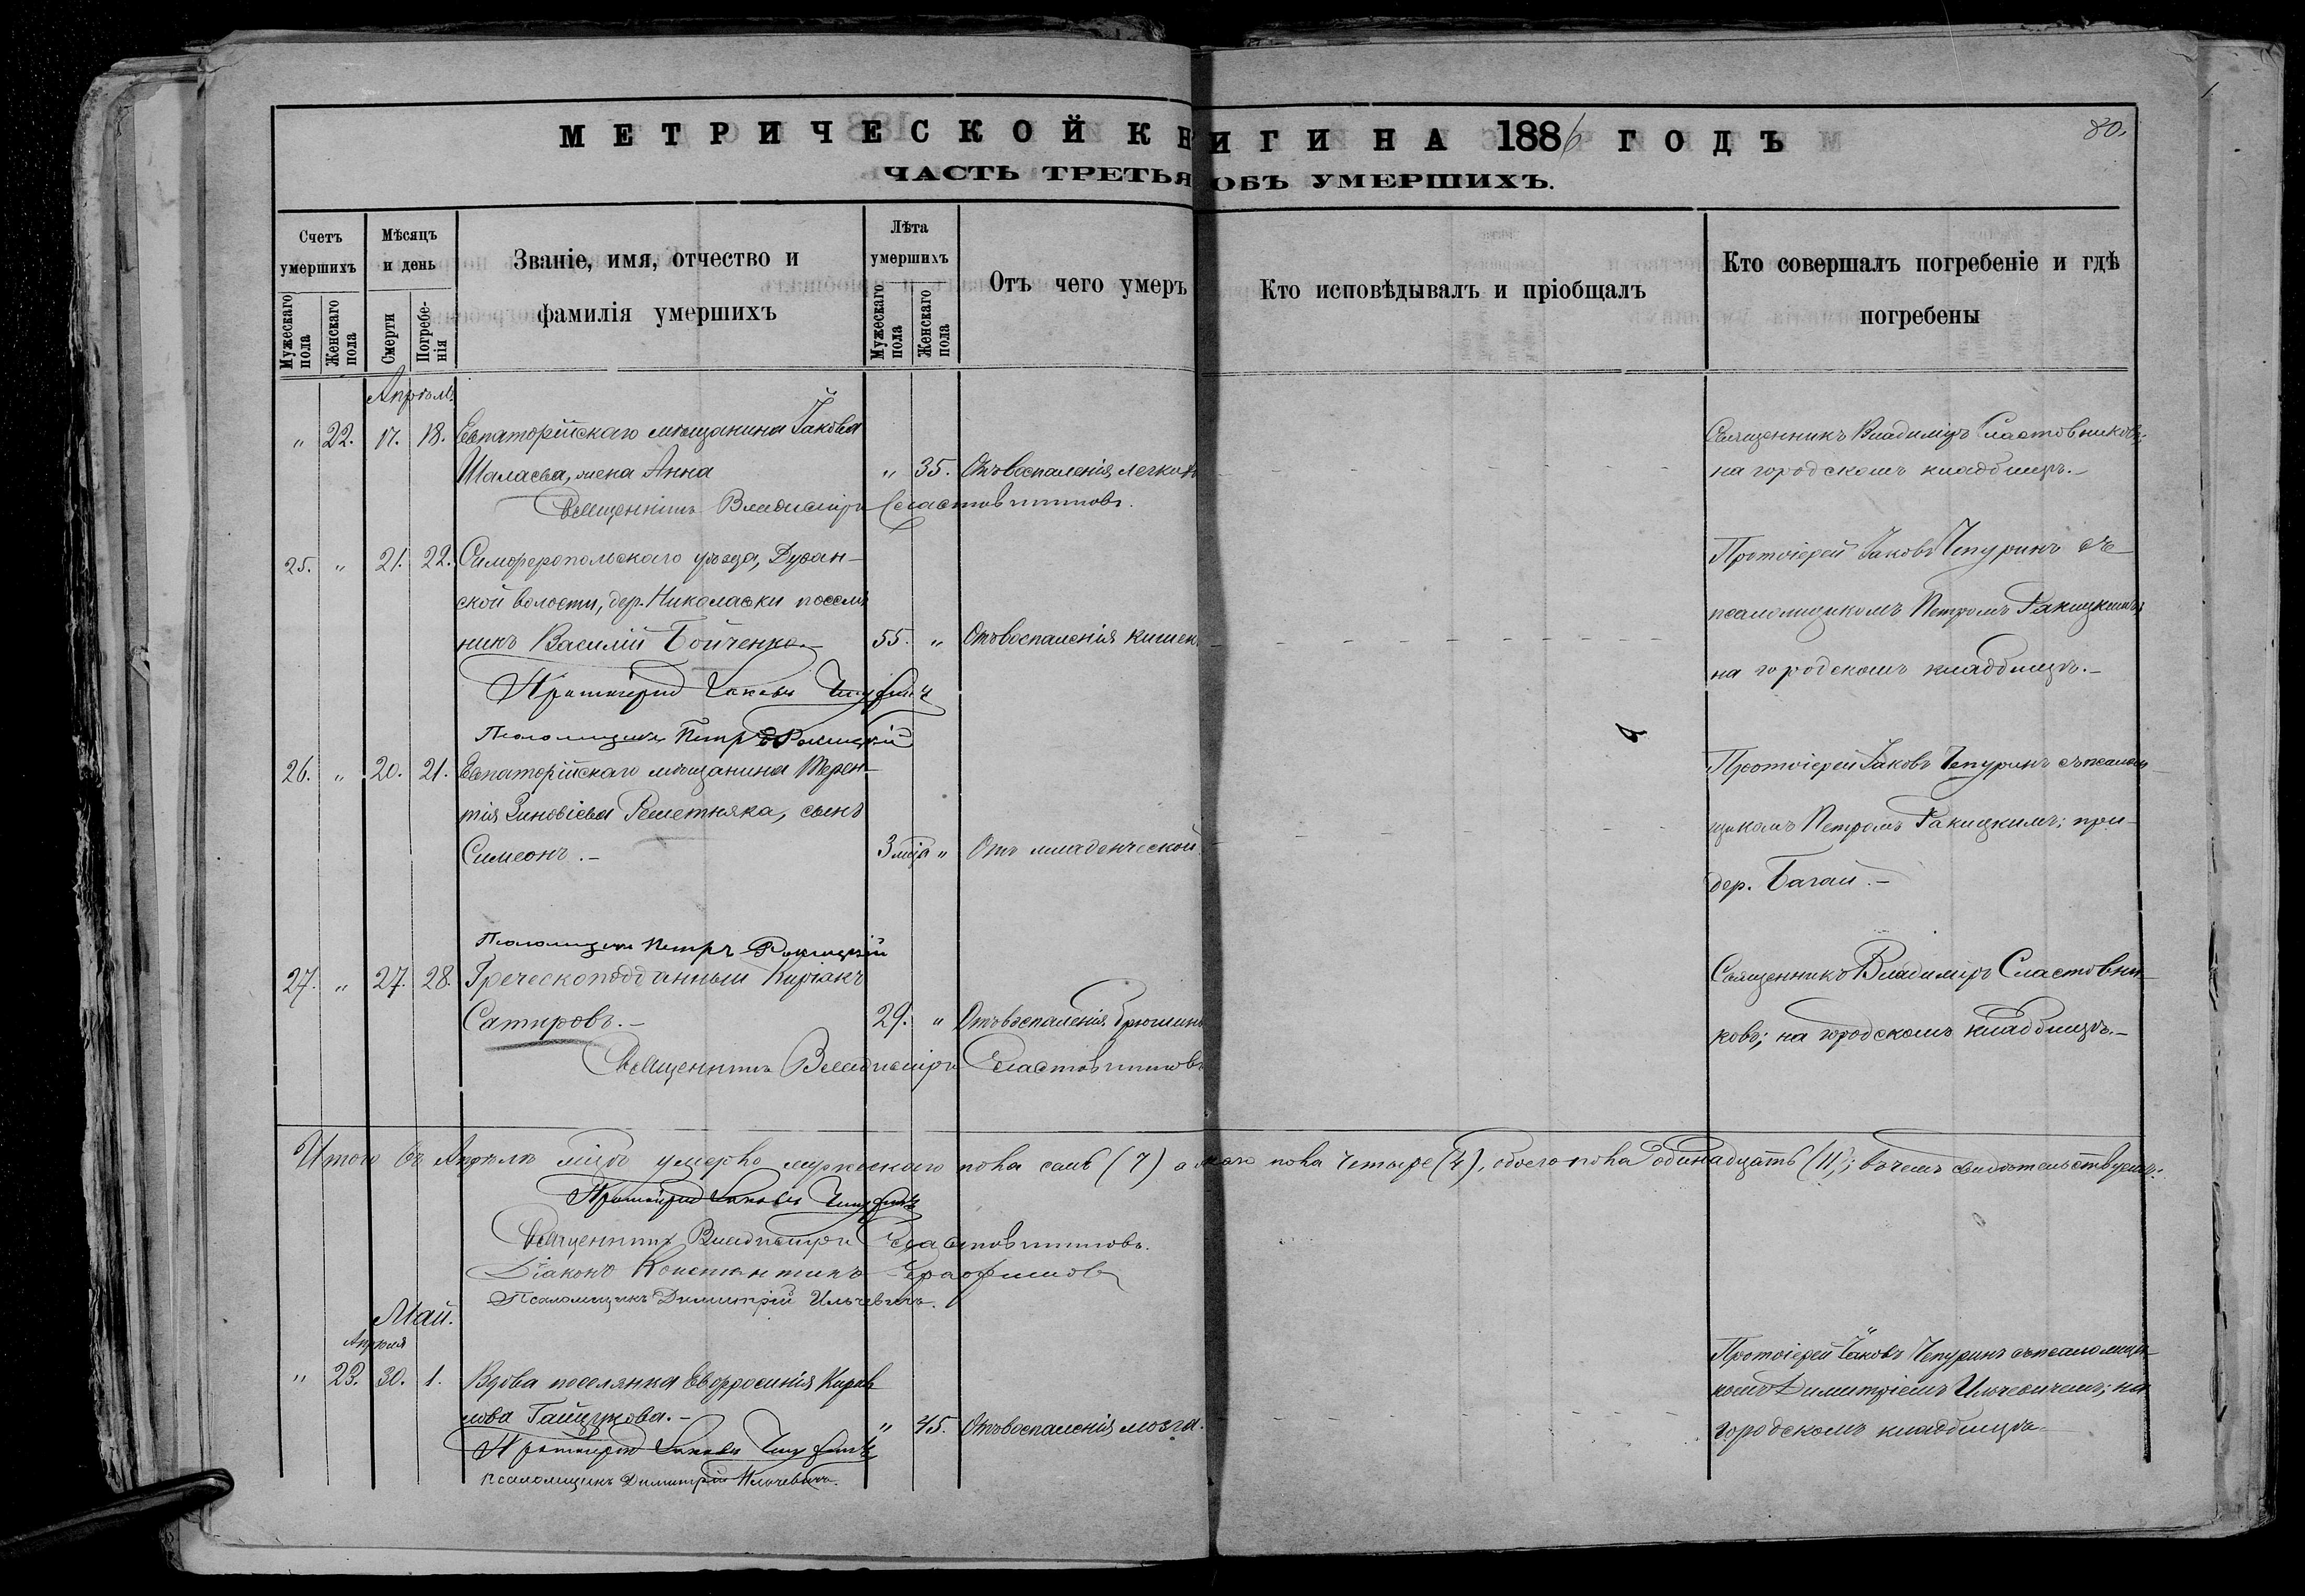 МЕТРИЧЕСКОЙ КНИГИ НА 1886 ГОДЪ
80.
ЧАСТЬ ТРЕТЬЯ ОБЪ УМЕРШИХЪ.
Счетъ умершихъ
Мѣсяцъ и день
Званіе, имя, отчество и фамилія умершихъ
Лѣта умершихъ
Отъ чего умеръ
Кто исповѣдывалъ и пріобщалъ
Кто совершалъ погребеніе и гдѣ погребены
Мужескаго пола
Женскаго пола
Смерти
Погребенія
Мужескаго пола
Женскаго пола
Апрѣль
„ 22. 17. 18. Евпаторійскаго мѣщанина Іакова
Шалаева, жена Анна „ 35. Отъ воспаленія легкихъ
Священникъ Владиміръ Сластовниковъ;
на городскомъ кладбищѣ.
Священникъ Владиміръ Сластовниковъ.
25. „ 21. 22. Симферопольскаго уѣзда,
ской волости, дер. Николаевки поселя-
никъ Василій Бойченко. 55. „ Отъ воспаленія кишекъ
Протоіерей Іаковъ Чепуринъ съ
псаломщикомъ Петромъ Ракицкимъ;
на городскомъ кладбищѣ.
Протоіерей Іаковъ Чепуринъ
Псаломщикъ Петръ Ракицкій
26. „ 20. 21. Евпаторійскаго мѣщанина Терен-
тія Зиновіева Решетняка, сынъ
Симеонъ. 3 мца „ Отъ младенческой
Протоіерей Іаковъ Чепуринъ съ псалом-
щикомъ Петромъ Ракицкимъ; при
дер. Багаи.
Псаломщикъ Петръ Ракицкій
27. „ 27. 28. Греческоподданный Киріакъ
Сатировъ. 29. „ Отъ воспаленія брюшины
Священникъ Владиміръ Сластовни-
ковъ; на городскомъ кладбищѣ.
Священникъ Владиміръ Сластовниковъ
Итого въ Апрѣлѣ мцѣ умерло мужескаго пола семь (7) а женскаго пола четыре (4), обоего пола одинадцать (11); въ чемъ свидѣтельствуемъ:
Протоіерей Іаковъ Чепуринъ
Священникъ Владиміръ Сластовниковъ.
Діаконъ Константинъ
Псаломщикъ Димитрій Ильчевичъ.
Май.
Апрѣля
„ 23. 30. 1. Вдова поселянка Евфросинія Кирил-
лова „ 45. Отъ воспаленія мозга.
Протоіерей Іаковъ Чепуринъ съ псаломщи-
комъ Димитріемъ Ильчевичемъ; на
городскомъ кладбищѣ
Протоіерей Іаковъ Чепуринъ
Псаломщикъ Димитрій Ильчевичъ.